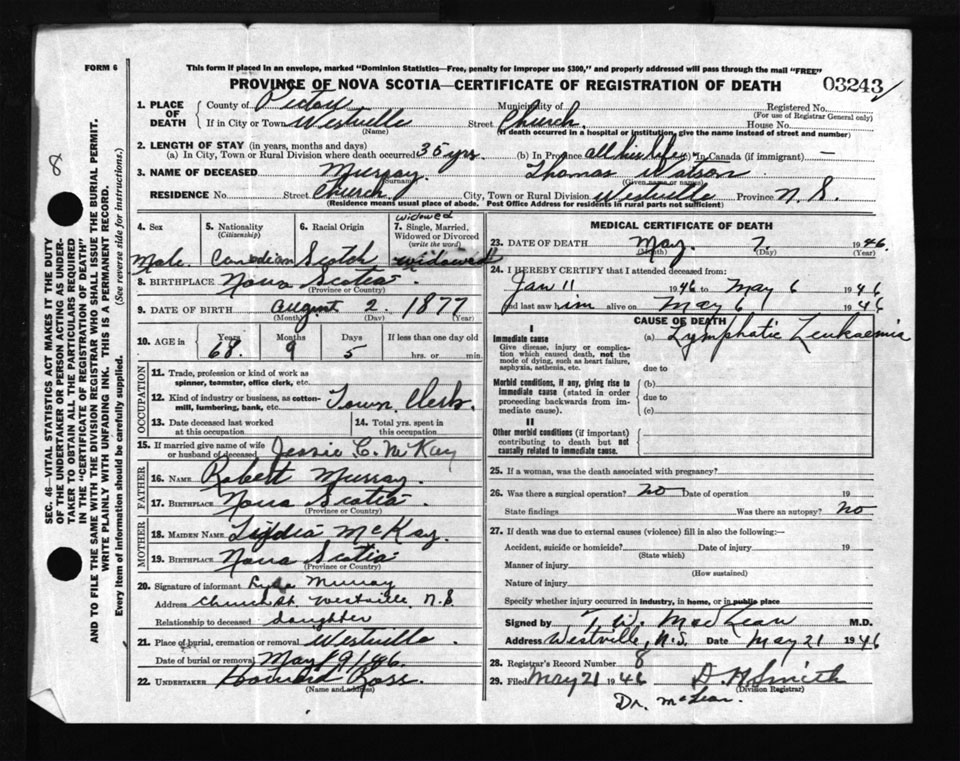 FORM 6
This form if placed in an envelope, marked "Dominion Statistics—Free, penalty for improper use $300," and properly addressed will pass through the mail "FREE"
PROVINCE OF NOVA SCOTIA—CERTIFICATE OF REGISTRATION OF DEATH
03243
8
SEC. 46—VITAL STATISTICS ACT MAKES IT THE DUTY
OF THE UNDERTAKER OR PERSON ACTING AS UNDER-
TAKER TO OBTAIN ALL THE PARTICULARS REQUIRED
IN THE "CERTIFICATE OF REGISTRATION OF DEATH"
AND TO FILE THE SAME WITH THE DIVISION REGISTRAR WHO SHALL ISSUE THE BURIAL PERMIT.
WRITE PLAINLY WITH UNFADING INK. THIS IS A PERMANENT RECORD.
Every item of information should be carefully supplied. (See reverse side for instructions.)
1. PLACE OF DEATH
County of Pictou Municipality of Registered No.
(For use of Registrar General only)
If in City or Town Westville Street Church House No.
(Name) (If death occurred in a hospital or institution, give the name instead of street and number)
2. LENGTH OF STAY (in years, months and days)
(a) In City, Town or Rural Division where death occurred 35 yrs. (b) In Province all his life (c) In Canada (if immigrant) —
3. NAME OF DECEASED Murray Thomas Watson
(Surname) (Given name or names)
RESIDENCE No. Street Church City, Town or Rural Division Westville Province N.S.
(Residence means usual place of abode. Post Office Address for residents in rural parts not sufficient)
4. Sex
Male
5. Nationality
(Citizenship)
Canadian
6. Racial Origin
Scotch
widowed
7. Single, Married,
Widowed or Divorced
(write the word)
widowed
8. BIRTHPLACE Nova Scotia
(Province or Country)
9. DATE OF BIRTH August 2 1877
(Month) (Day) (Year)
10. AGE in Years Months Days If less than one day old
68 9 5 hrs. or min.
OCCUPATION
11. Trade, profession or kind of work as
spinner, teamster, office clerk, etc.
12. Kind of industry or business, as cotton-
mill, lumbering, bank, etc. Town Clerk
13. Date deceased last worked
at this occupation
14. Total yrs. spent in
this occupation
15. If married give name of wife
or husband of deceased Jessie C. McKay
FATHER
16. NAME Robert Murray
17. BIRTHPLACE Nova Scotia
(Province or Country)
MOTHER
18. MAIDEN NAME Lydia McKay
19. BIRTHPLACE Nova Scotia
(Province or Country)
20. Signature of informant Murray
Address Church St. Westville, N.S.
Relationship to deceased daughter
21. Place of burial, cremation or removal Westville
Date of burial or removal May 9/46.
22. UNDERTAKER Howard Ross
(Name and address)
MEDICAL CERTIFICATE OF DEATH
23. DATE OF DEATH May 7 1946
(Month) (Day) (Year)
24. I HEREBY CERTIFY that I attended deceased from:
Jan 11 1946 to May 6 1946
and last saw him alive on May 6 1946
CAUSE OF DEATH
I
Immediate cause
Give disease, injury or complica-
tion which caused death, not the
mode of dying, such as heart failure,
asphyxia, asthenia, etc.
(a) Lymphatic Leukaemia
due to
Morbid conditions, if any, giving rise to
immediate cause (stated in order
proceeding backwards from im-
mediate cause).
(b)
due to
(c)
II
Other morbid conditions (if important)
contributing to death but not
causally related to immediate cause.
25. If a woman, was the death associated with pregnancy?
26. Was there a surgical operation? no Date of operation 19
State findings Was there an autopsy? no
27. If death was due to external causes (violence) fill in also the following:—
Accident, suicide or homicide? Date of injury 19
(State which)
Manner of injury
(How sustained)
Nature of injury
Specify whether injury occurred in industry, in home, or in public place
Signed by T. W. MacLean M.D.
Address Westville, N.S. Date May 21 1946
28. Registrar's Record Number 8
29. Filed May 21 1946 D. H. Smith
(Division Registrar)
Dr. McLean.